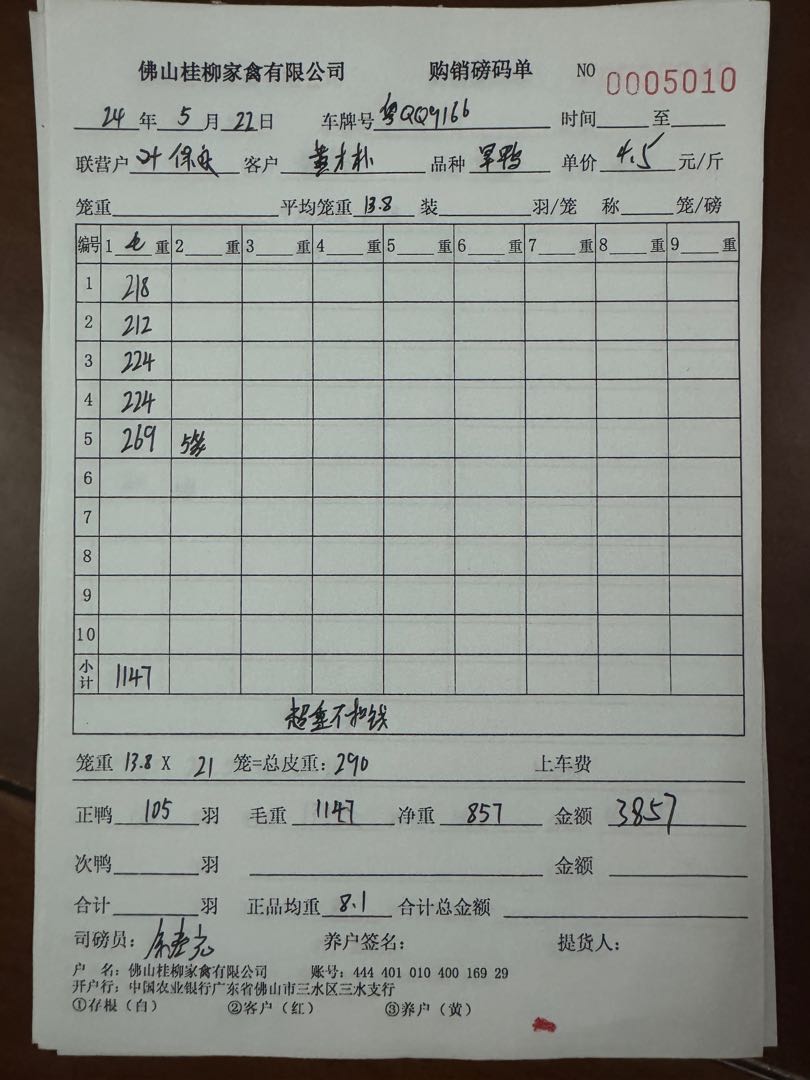 佛山桂柳家禽有限公司 购销磅码单 NO 0005010
24 年 5 月 22 日 车牌号 粤QQ9166 时间 至
联营户 叶保 客户 黄才朴 品种 旱鸭 单价 4.5 元/斤
笼重 平均笼重 13.8 装 羽/笼 称 笼/磅
编号 1 毛 重 2 重 3 重 4 重 5 重 6 重 7 重 8 重 9 重
1 218
2 212
3 224
4 224
5 269 5笼
6
7
8
9
10
小计 1147
超重不扣钱
笼重 13.8 X 21 笼=总皮重: 290 上车费
正鸭 105 羽 毛重 1147 净重 857 金额 3857
次鸭 羽 金额
合计 羽 正品均重 8.1 合计总金额
司磅员: 养户签名: 提货人:
户 名: 佛山桂柳家禽有限公司 账号: 444 401 010 400 169 29
开户行: 中国农业银行广东省佛山市三水区三水支行
①存根（白） ②客户（红） ③养户（黄）